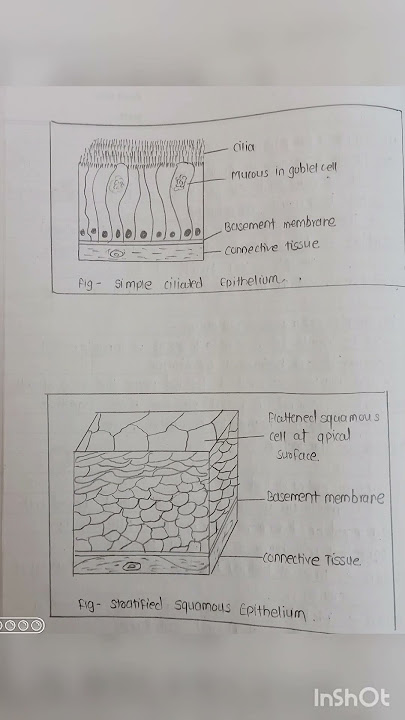 cilia
Mucous in goblet cell
Basement membrane
connective tissue
Fig- simple ciliated Epithelium.
Flattened squamous
cell at apical
surface.
Basement membrane
connective Tissue.
Fig- Stratified squamous Epithelium.
InShOt